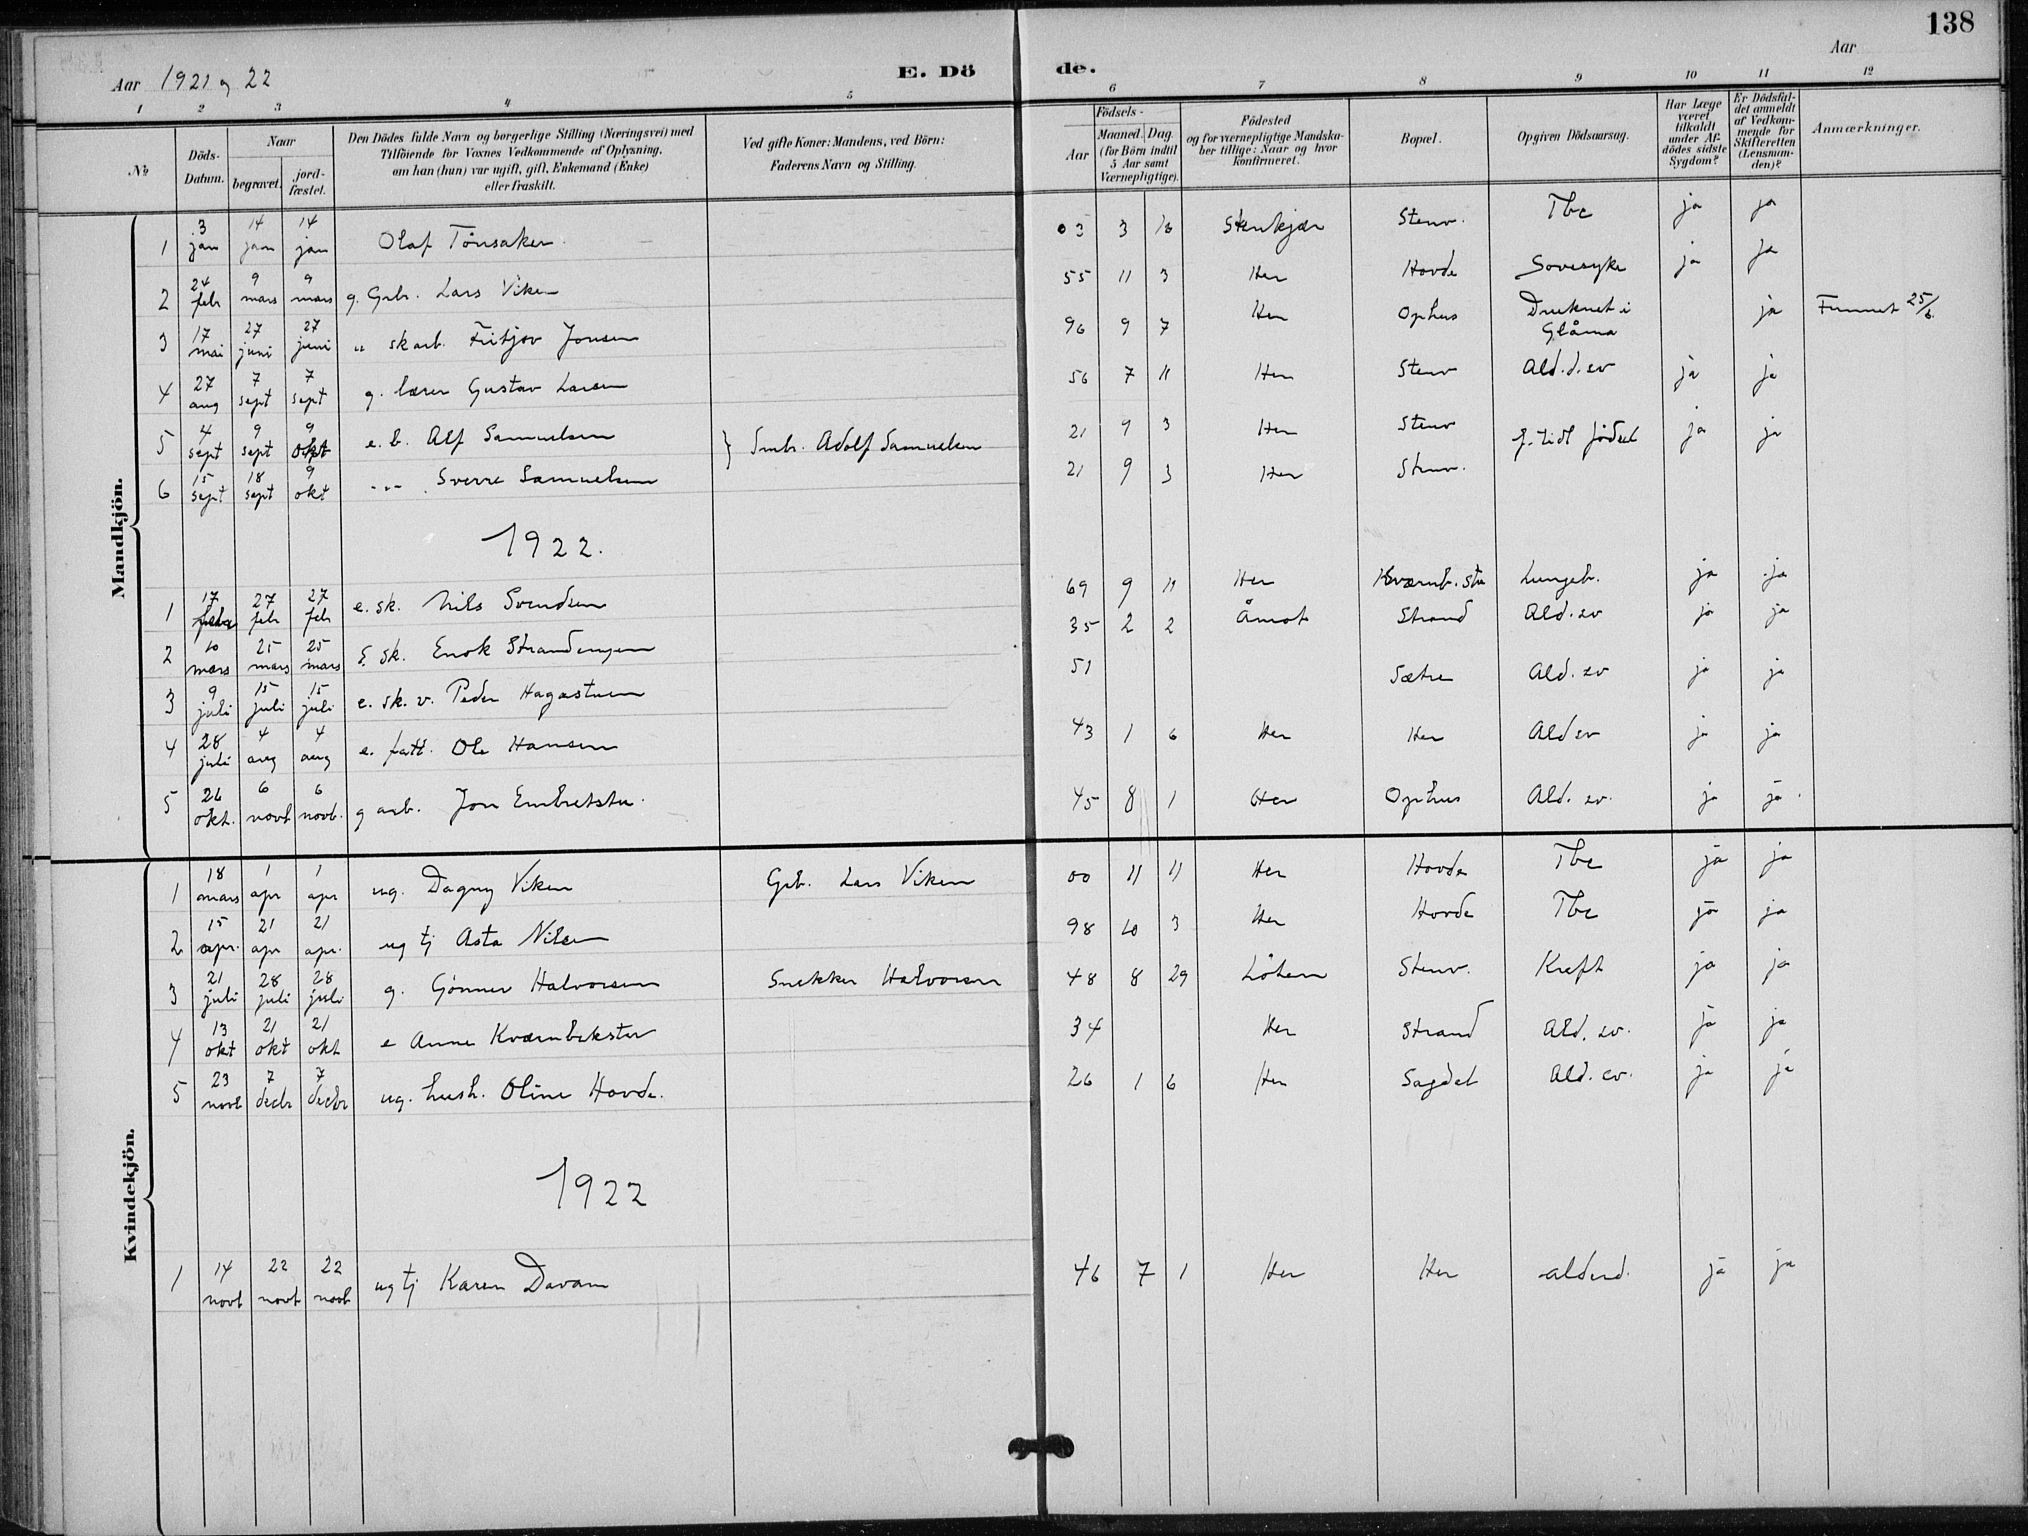 138
Aar 1921 og 22
E. Dö de.
Aar
1 2 3 4 5 6 7 8 9 10 11 12
No
Döds-Datum.
Naar
begravet.
jord-fæstet.
Den Dödes fulde Navn og borgerlige Stilling (Næringsvei) med
Tilföiende for Voxnes Vedkommende af Oplysning,
om han (hun) var ugift, gift, Enkemand (Enke)
eller fraskilt.
Ved gifte Koner: Mandens, ved Börn:
Faderens Navn og Stilling.
Födsels-
Aar
Maaned. Dag.
(for Börn indtil
5 Aar samt
Værnepligtige).
Födested
og for værnepligtige Mandska-
ber tillige: Naar og hvor
konfirmeret.
Bopæl.
Opgiven Dödsaarsag.
Har Læge
været
tilkaldt
under Af-
dödes sidste
Sygdom?
Er Dödsfal-
det anmeldt
af Vedkom-
mende for
Skifteretten
(Lensman-
den)?
Anmærkninger.
Mandkjön.
1 3 jan 14 jan 14 jan Olaf Tönsaker 03 3 16 Stenkjær Stenv. Tbc ja ja
2 24 febr 9 mars 9 mars g. Grbr. Lars Viken 55 11 3 Her Hovde Sovesyke ja ja
3 17 mai 27 juni 27 juni " skarb. Fritjov Jonsen 96 9 7 Her Ophus Druknet i Glåma ja Funnet 25/6.
4 27 aug 7 sept 7 sept g. lærer Gustav Larsen 56 7 11 Her Stenv Ald.d.sv ja ja
5 4 sept 9 sept 9 okt e. b. Alf Samuelsen } Smbr. Adolf Samuelsen 21 9 3 Her Stenv f. tidl födsel ja ja
6 15 sept 18 sept 9 okt -"- Sverre Samuelsen 21 9 3 Her Stenv.
1922.
1 17 27 febr 27 febr e. sk. Nils Svendsen 69 9 11 Her Kværnb. stu Lungeb. ja ja
2 10 mars 25 mars 25 mars sk. Enok Strandengen 35 2 2 Åmot Strand Ald. sv ja ja
3 9 juli 15 juli 15 juli e. sk. v. Peder Hagastuen 51 Sætre Ald. sv ja ja
4 28 juli 4 aug 4 aug e. fatt. Ole Hansen 43 1 6 Her Her Ald sv ja ja
5 26 okt. 6 novb 6 novb. g arb. Jon Embretstu. 45 8 1 Her Ophus Ald. sv. ja ja
Kvindekjön.
1 18 mars 1 apr 1 apr ug. Dagny Viken Grb. Lars Viken 00 11 11 Her Hovde Tbc ja ja
2 15 apr. 21 apr 21 apr. ug tj Asta Nilsen 98 10 3 Her Hovde Tbc ja ja
3 21 juli 28 juli 28 juli g. Gönner Halvorsen Snekker Halvorsen 48 8 29 Löten Stenv. Kreft ja ja
4 13 okt 21 okt 21 okt e Anne Kværnbekstu 34 Her Strand Ald. sv. ja ja
5 23 novb 7 decbr 7 decbr ug. hush. Oline Hovde. 26 1 6 Her Sagdel Ald. sv. ja ja
1922
1 14 novb 22 novb 22 novb ug tj Karen Davam 46 7 1 Her Her alderd. ja ja